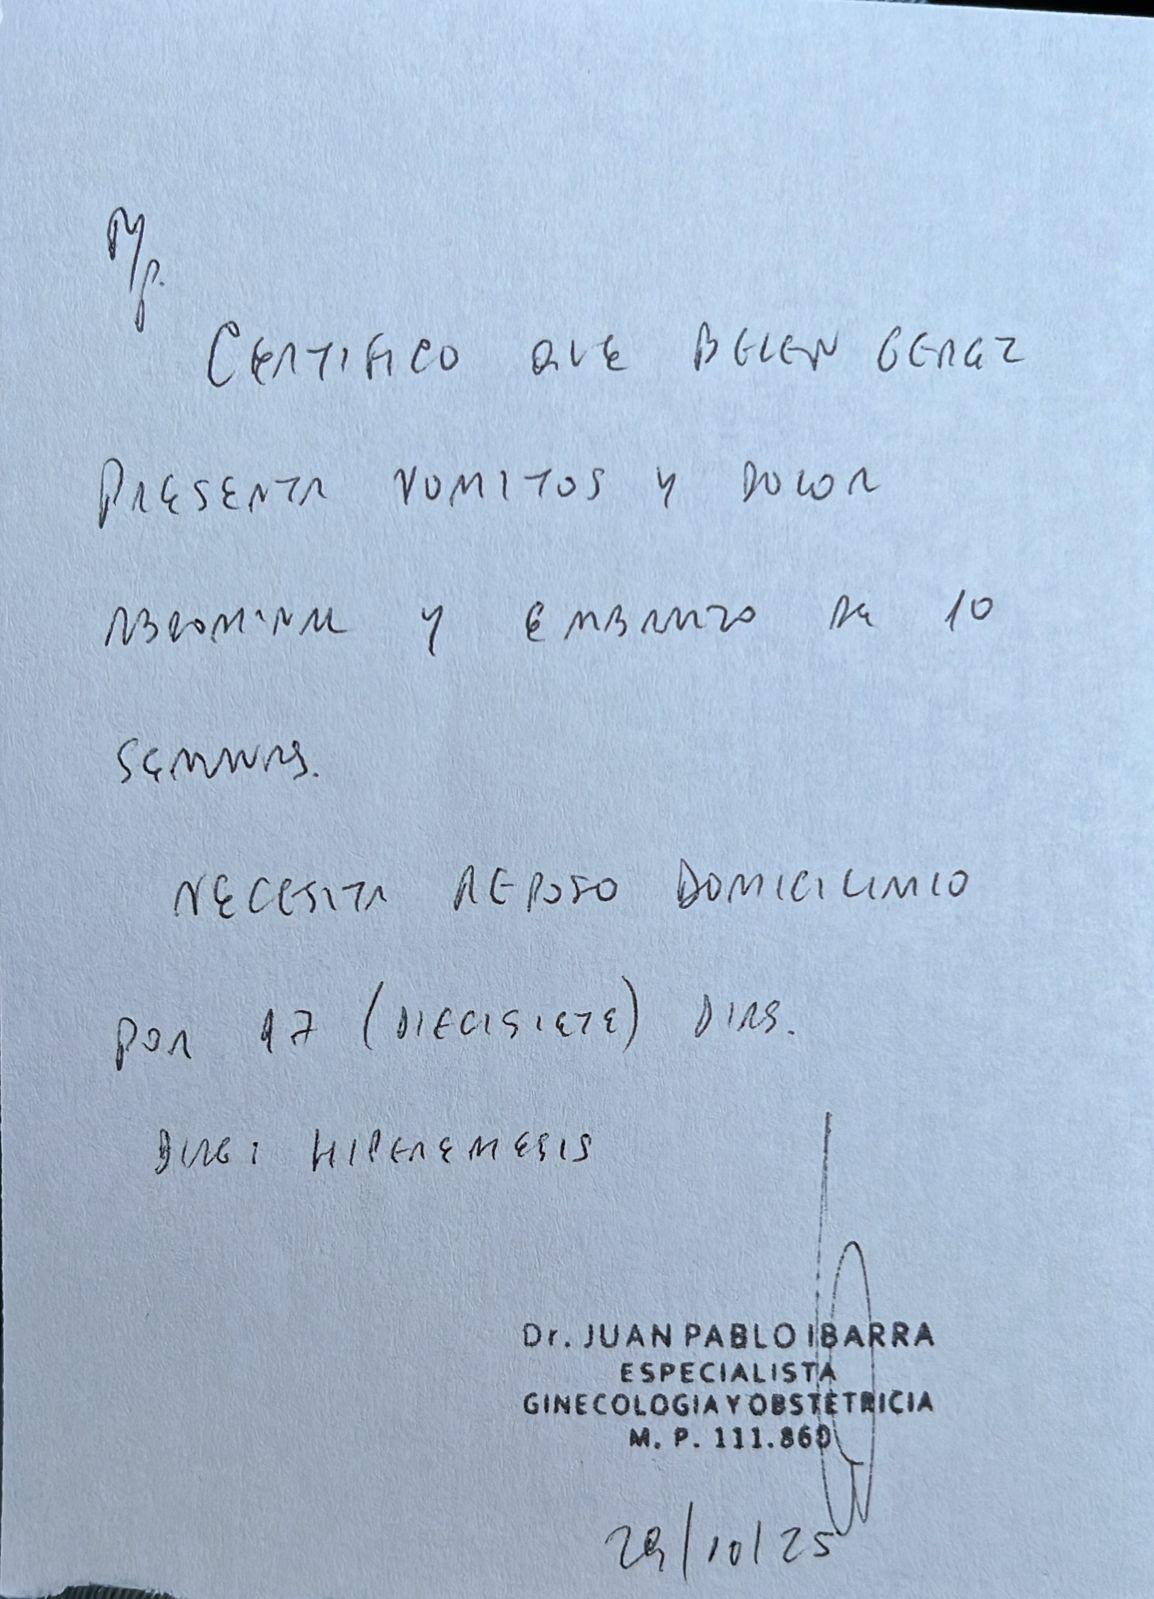 R/p.
CERTIFICO QUE BELEN GEREZ
PRESENTA VOMITOS Y DOLOR
ABDOMINAL Y EMBARAZO DE 10
SEMANAS.
NECESITA REPOSO DOMICILIARIO
POR 17 (DIECISIETE) DIAS.
DIAG: HIPEREMESIS
Dr. JUAN PABLO IBARRA
ESPECIALISTA
GINECOLOGIA Y OBSTETRICIA
M. P. 111.860
29/10/25